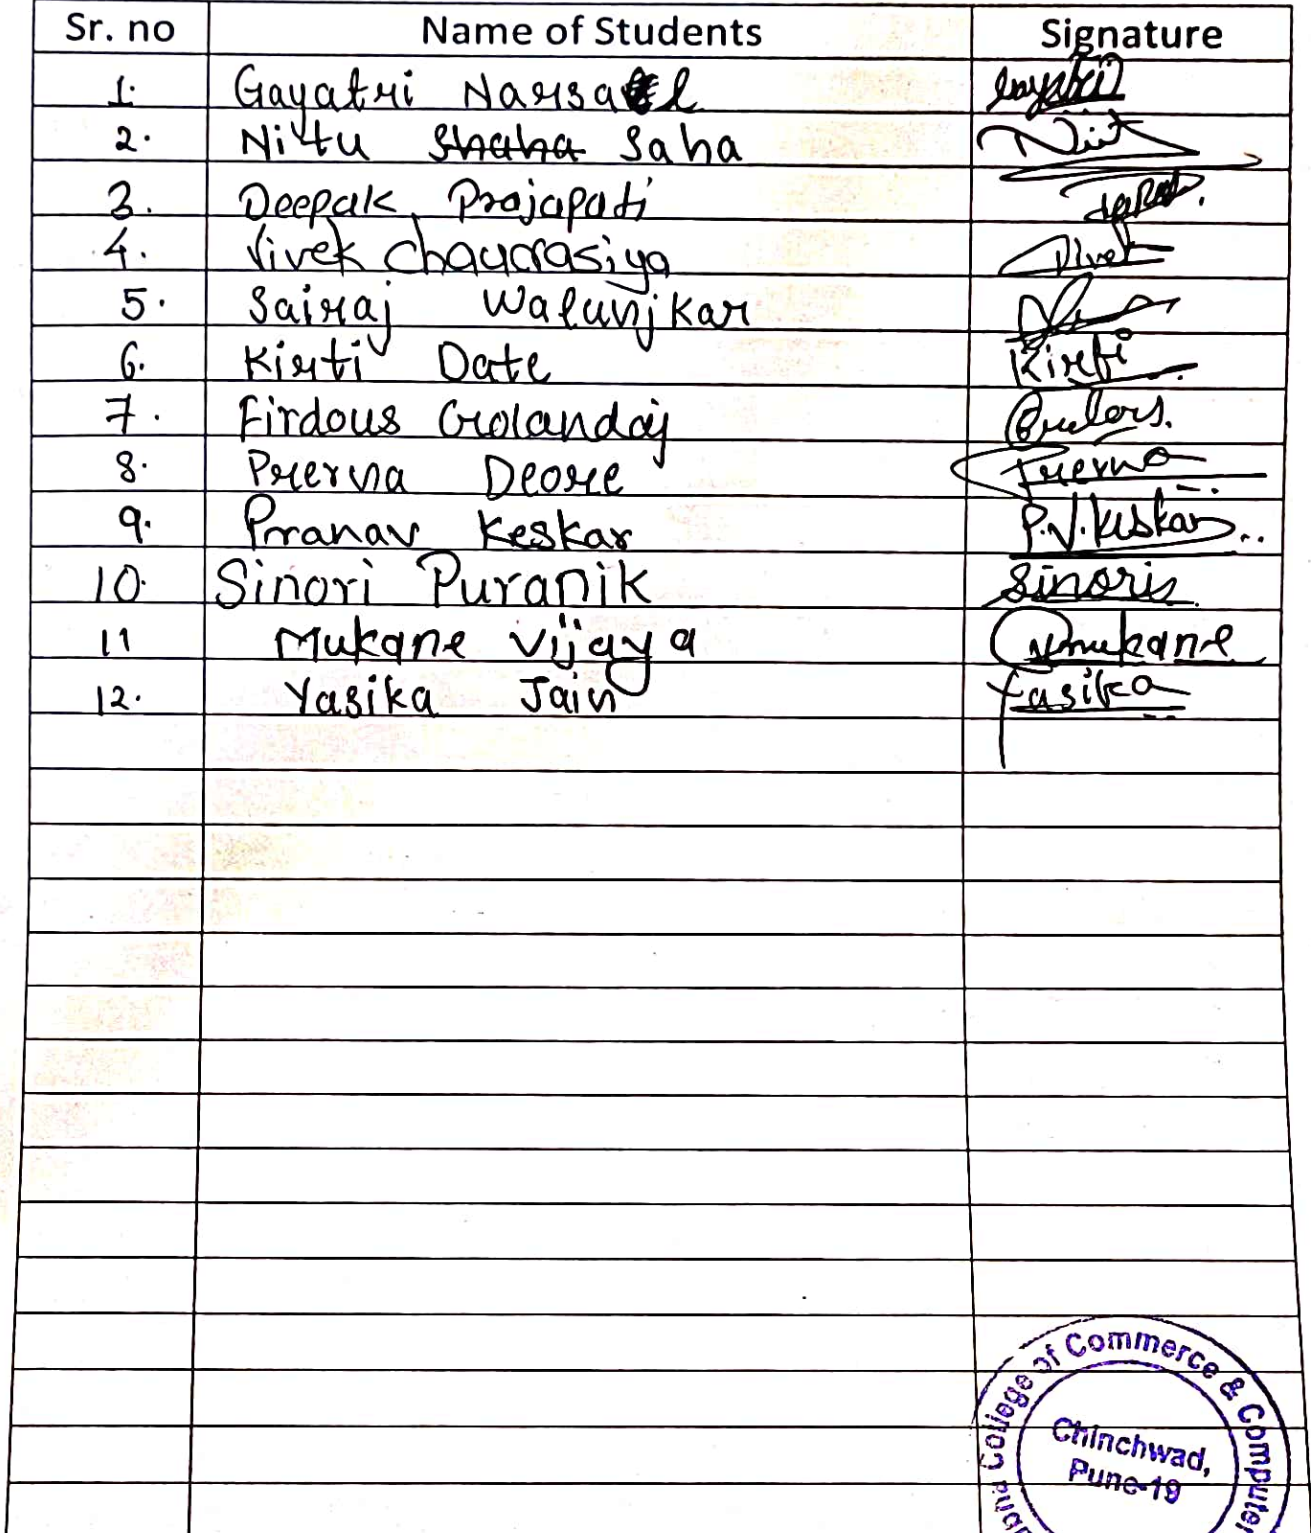 Sr. no Name of Students Signature
1. Gayatri Narsale Gayatri
2. Nittu Shaha Saha
3. Deepak Prajapati
4. Vivek Chaurasiya Vivek
5. Sairaj Walunjkar
6. Kirti Date Kirti
7. Firdous Golandaj
8. Prerna Deore Prerna
9. Pranav Keskar P.V.Keskar..
10. Sinori Puranik Sinoris
11 Mukane Vijaya Vmukane
12. Yasika Jain Yasika
College of Commerce & Computer
Chinchwad,
Pune-19